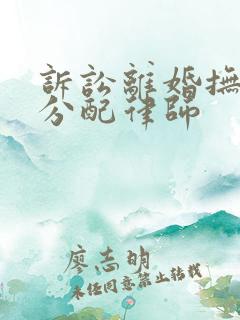 訴訟離婚撫
分配律師
廖志明
未任同意禁止轉載